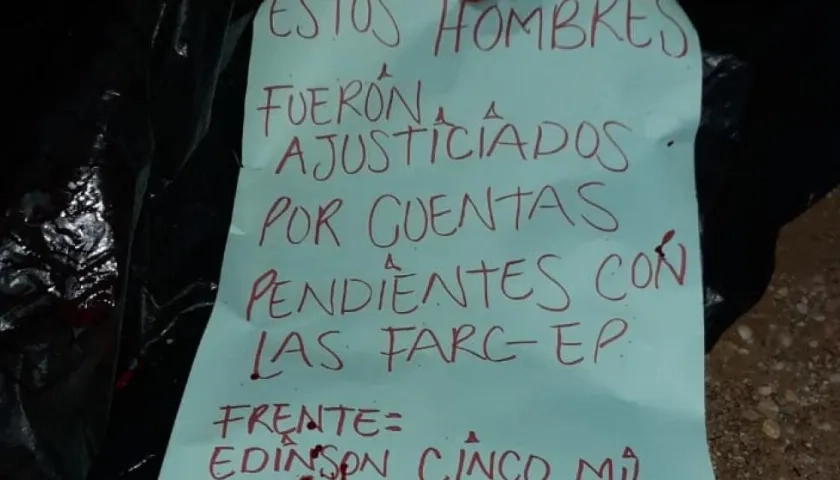 ESTOS HOMBRES
FUERÓN
AJUSTICIADOS
POR CUENTAS
PENDIENTES CON
LAS FARC-EP
FRENTE=
EDINSON CINCO MIL